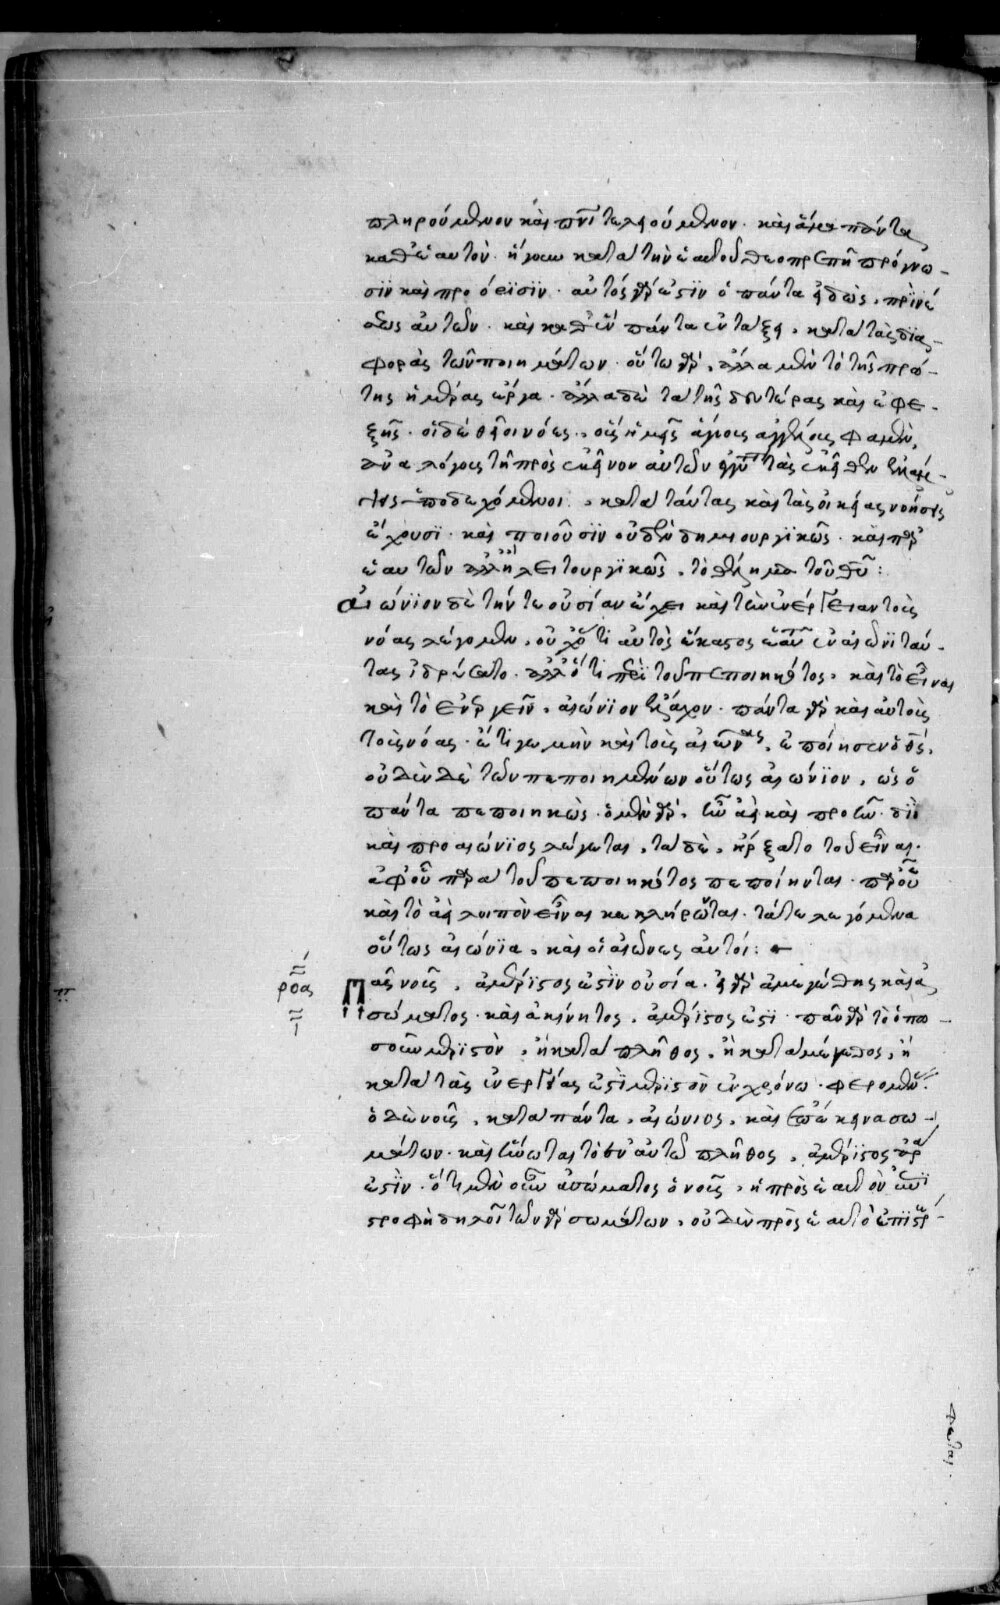 πληρούμενον καὶ πνι τελειούμενον. καὶ ἅμα πάντα
καθ' ἑαυτὸν. ἤγουν κατὰ τὴν ἑαυτοῦ θεοπρεπῆ πρόγνω-
σϊν καὶ προόεϊσϊν. αὐτὸς γάρ ἐστϊν ὁ πάντα εἰδὼς, πρϊν
αὐτῶν. καὶ καθ' ἓν πάντα ἐντάξει, κατὰ τὰς δϊα-
φορὰς τῶν ποιημάτων. οὕτω γὰρ, ἄλλα μὲν τὸ τῆς πρώ-
της ἡμέρας ἔργα. ἄλλα δὲ τὰ τῆς δευτέρας καὶ ἐφε-
ξῆς. οἱ δὲ θεῖοι νόες, οὓς ἡμεῖς ἁγίους ἀγγέλους φαμὲν,
ἀναλόγως τῆ πρὸς ἐκεῖνον αὐτῶν τὰς ἐκεῖθεν
ὑποδεχόμενοι, κατὰ ταύτας καὶ τὰς οἰκείας νοήσεις
ἔχουσϊ. καὶ ποιοῦσϊν οὐδὲν δημιουργϊκῶς. καὶ παρ'
ἑαυτῶν ἀλλὰ λειτουργϊκῶς, τὸ θέλημα τοῦ θυ:
Αἰώνϊον δὲ τήν τε οὐσίαν ἔχει καὶ τὴν ἐνέργειαν τοὺς
νόας λέγομεν, οὐχ ὅτι αὐτὸς ἕκαστος ἐν αἰῶνϊ ταύ-
τας ἱδρύσατο. ἀλλ' ὅτι τοῦ πεποιηκότος, καὶ τὸ εἶναι
καὶ τὸ ἐνεργεῖν, αἰώνϊον ἔχον. πάντα γὰρ καὶ αὐτοὺς
τοὺς νόας. ἔτι γε μὴν καὶ τοὺς αἰῶνας, ἐποίησεν ὁ θς,
οὐδὲν δὲ τῶν πεποιημένων οὕτως αἰώνϊον, ὡς ὁ
πάντα πεποιηκὼς. ὁ μὲν γὰρ, ἦν ἀεὶ καὶ προῆν. δϊὸ
καὶ προαιώνϊος λέγεται, τὰ δὲ, ἤρξατο τοῦ εἶναι.
ἀφ' οὗ παρὰ τοῦ πεποιηκότος πεποίηνται. παρ' οὗ
καὶ τὸ ἀεὶ λοιπὸν εἶναι κεκλήρωται. τά τε λεγόμενα
οὕτως αἰώνϊα, καὶ οἱ αἰῶνες αὐτοί:
ροα Πᾶς νοῦς, ἀμέρϊστος ἐστϊν οὐσία. εἰ γὰρ ἀμεγέθης καὶ ἀ-
σώματος. καὶ ἀκίνητος, ἀμέρϊστος ἐστϊ. πᾶν γὰρ τὸ ὁπω-
σοῦν μερϊστὸν, ἢ κατὰ πλῆθος, ἢ κατὰ μέγεθος, ἢ
κατὰ τὰς ἐνεργείας ἐστὶ μερϊστὸν ἐν χρόνω. φερομέν.
ὁ δὲ νοῦς, κατὰ πάντα, αἰώνιος, καὶ ἐπέκεινα σω-
μάτων. καὶ ἥνωται τὸ ἐν αὐτῶ πλῆθος, ἀμέρϊστος ἄρα
ἐστϊν. ὅτι μὲν οὖν ἀσώματος ὁ νοῦς, ἡ πρὸς ἑαυτὸν ἐπϊ
στροφὴ δηλοῖ τῶν γὰρ σωμάτων, οὐδὲν πρὸς ἑαυτὸ ἐπϊστρέ-